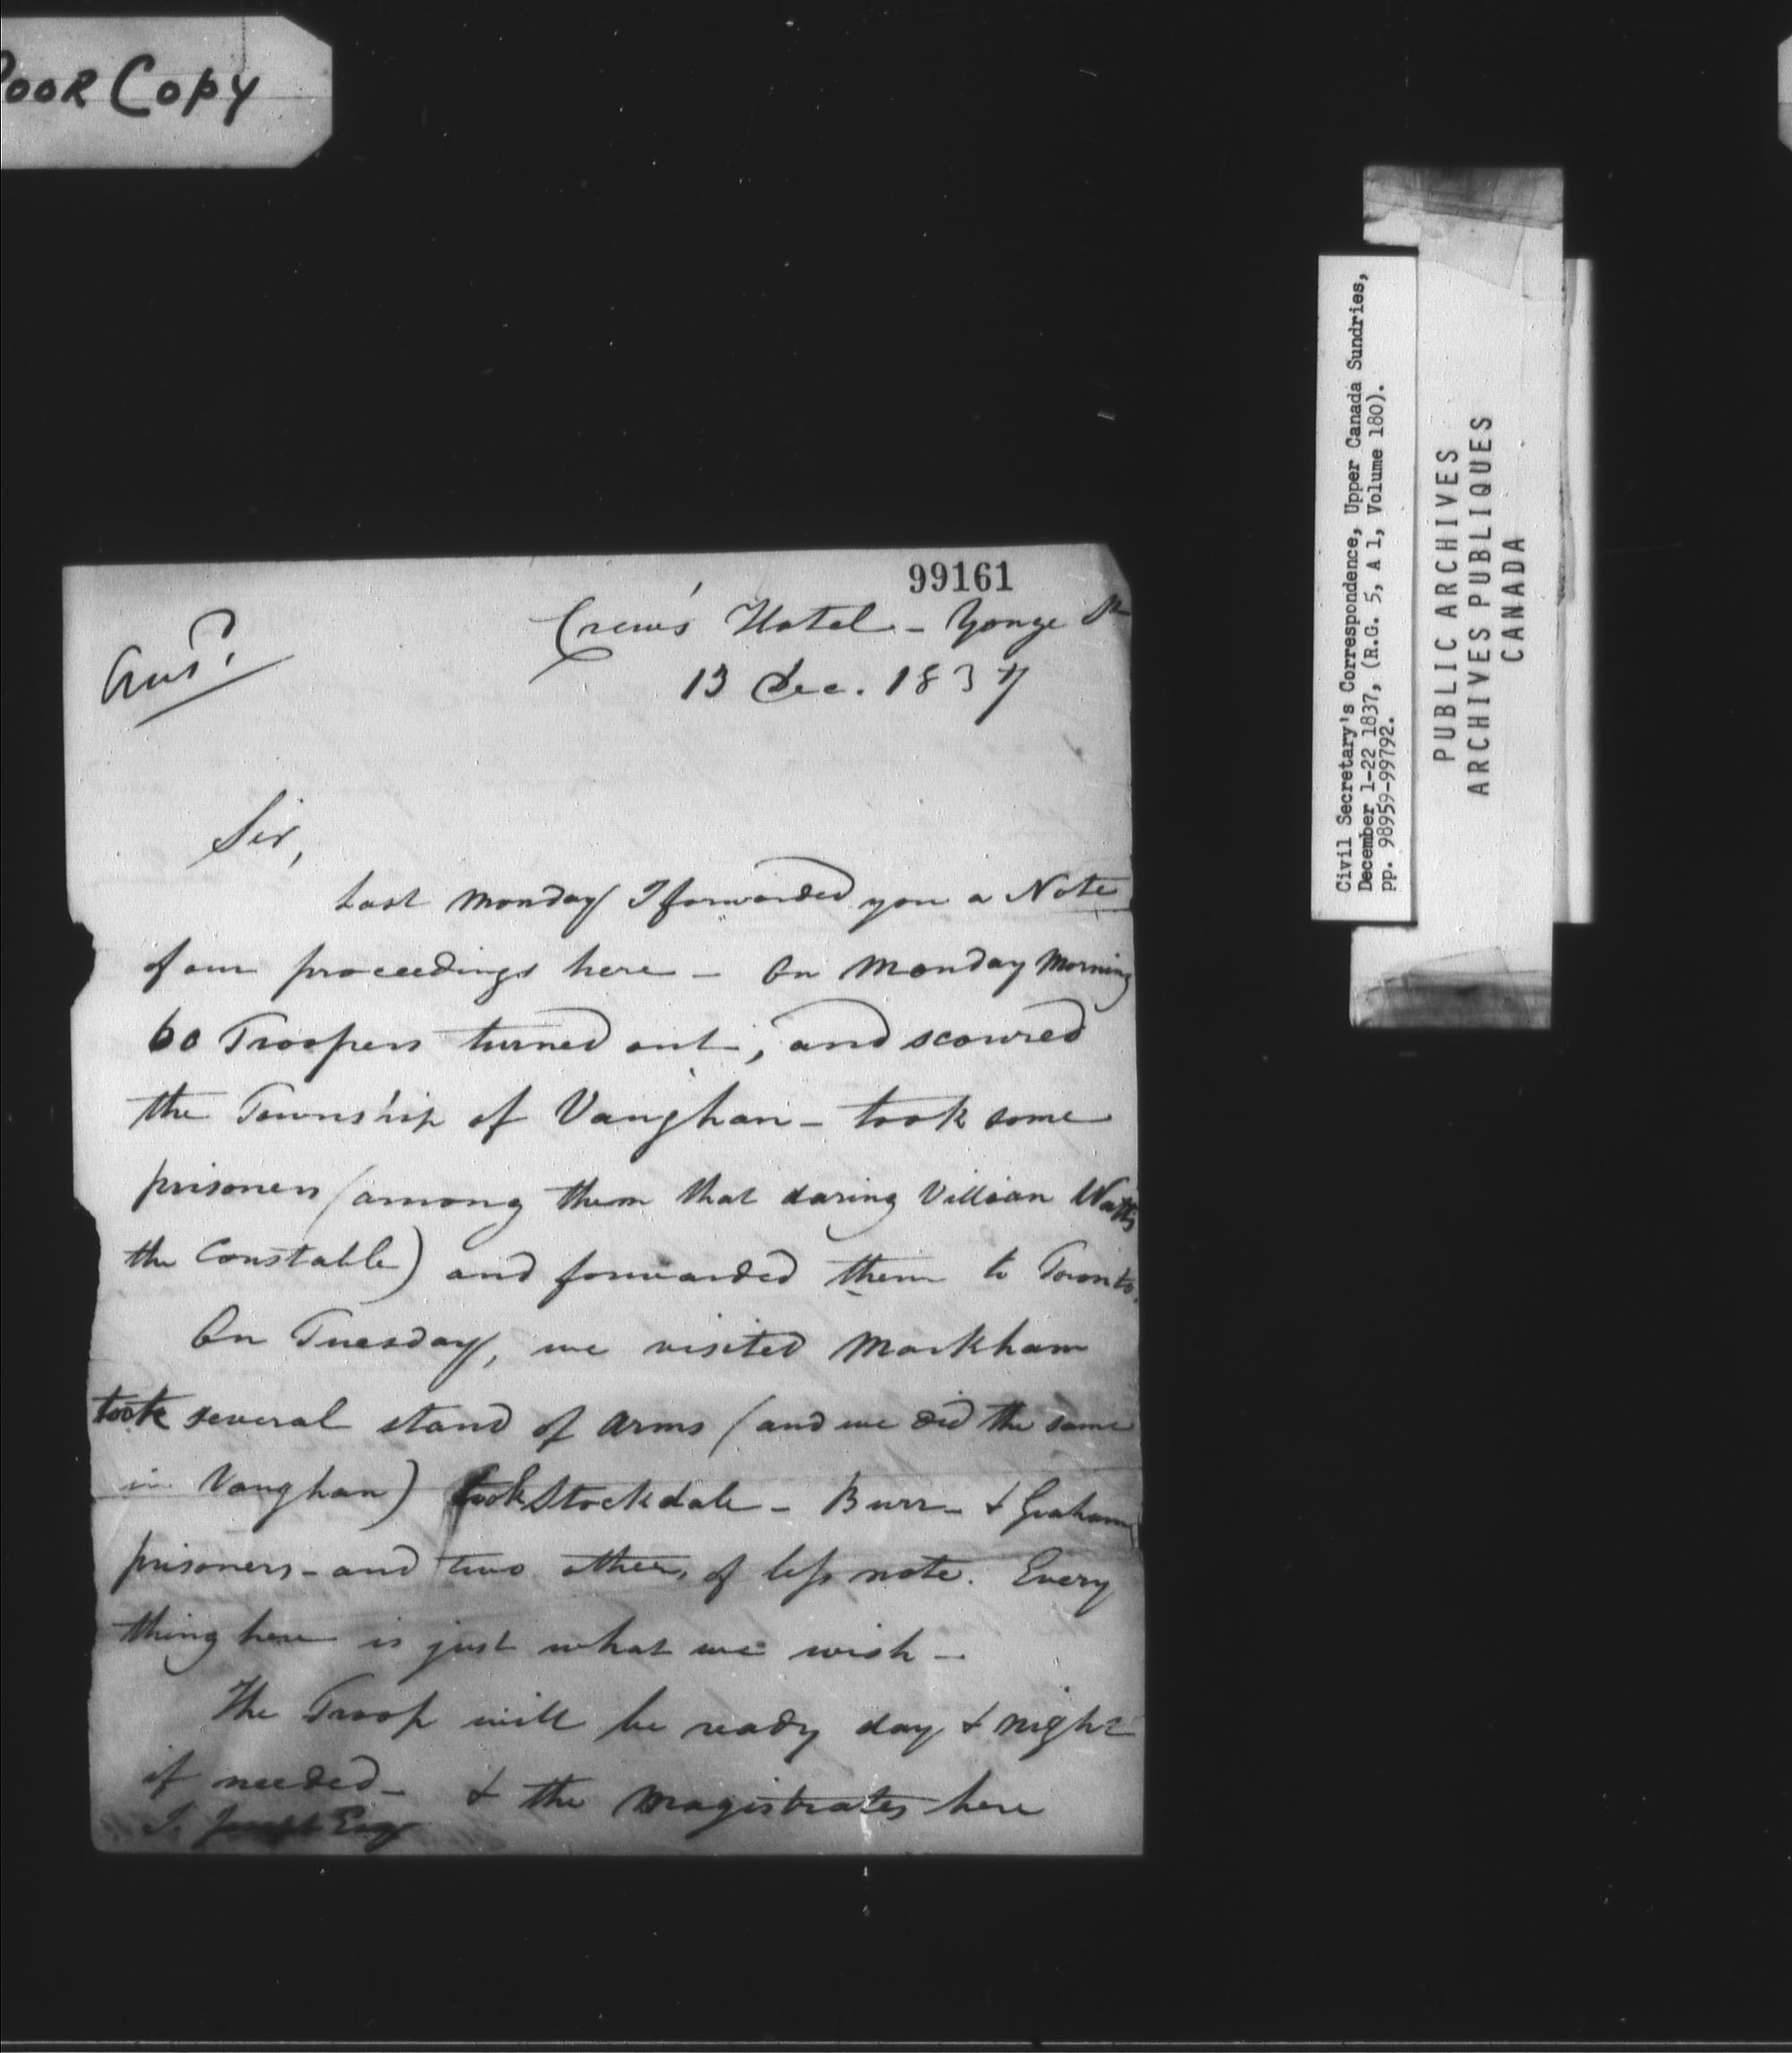 Poor Copy
99161
Crew's Hotel - Yonge St
Ansd.
13 Dec. 1837
Sir,
Last Monday I forwarded you a Note
of our proceedings here - On Monday Morning
60 Troopers turned out, and scoured
the Township of Vaughan - took some
prisoners (among them that daring Villian Watts
the Constable) and forwarded them to Toronto.
On Tuesday, we visited Markham
took several stand of arms (and we did the same
in Vaughan) took Stockdale - Burr - & Graham
prisoners - and two others, of less note. Every
thing here is just what we wish -
The Troop will be ready day & night
if needed - & the Magistrates here
J. Joseph Esqr
Civil Secretary's Correspondence, Upper Canada Sundries,
December 1-22 1837, (R.G. 5, A 1, Volume 180).
pp. 98959-99792.
PUBLIC ARCHIVES
ARCHIVES PUBLIQUES
CANADA